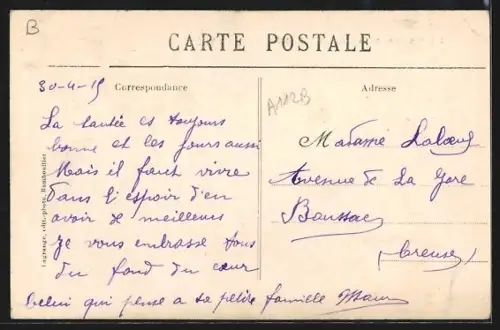 B
CARTE POSTALE
30-4-15
Correspondance
Adresse
A112B
La santée es toujours
bonne et les jours aussi
Mais il faut vivre
dans l'espoir d'en
avoir de meilleurs
je vous embrasse tous
du fond du cœur
Celui qui pense a sa petite famille
Madame
Avenue de La Gare
Boussac
(Creuse)
Lagrange, édit.-photo, Rambouillet